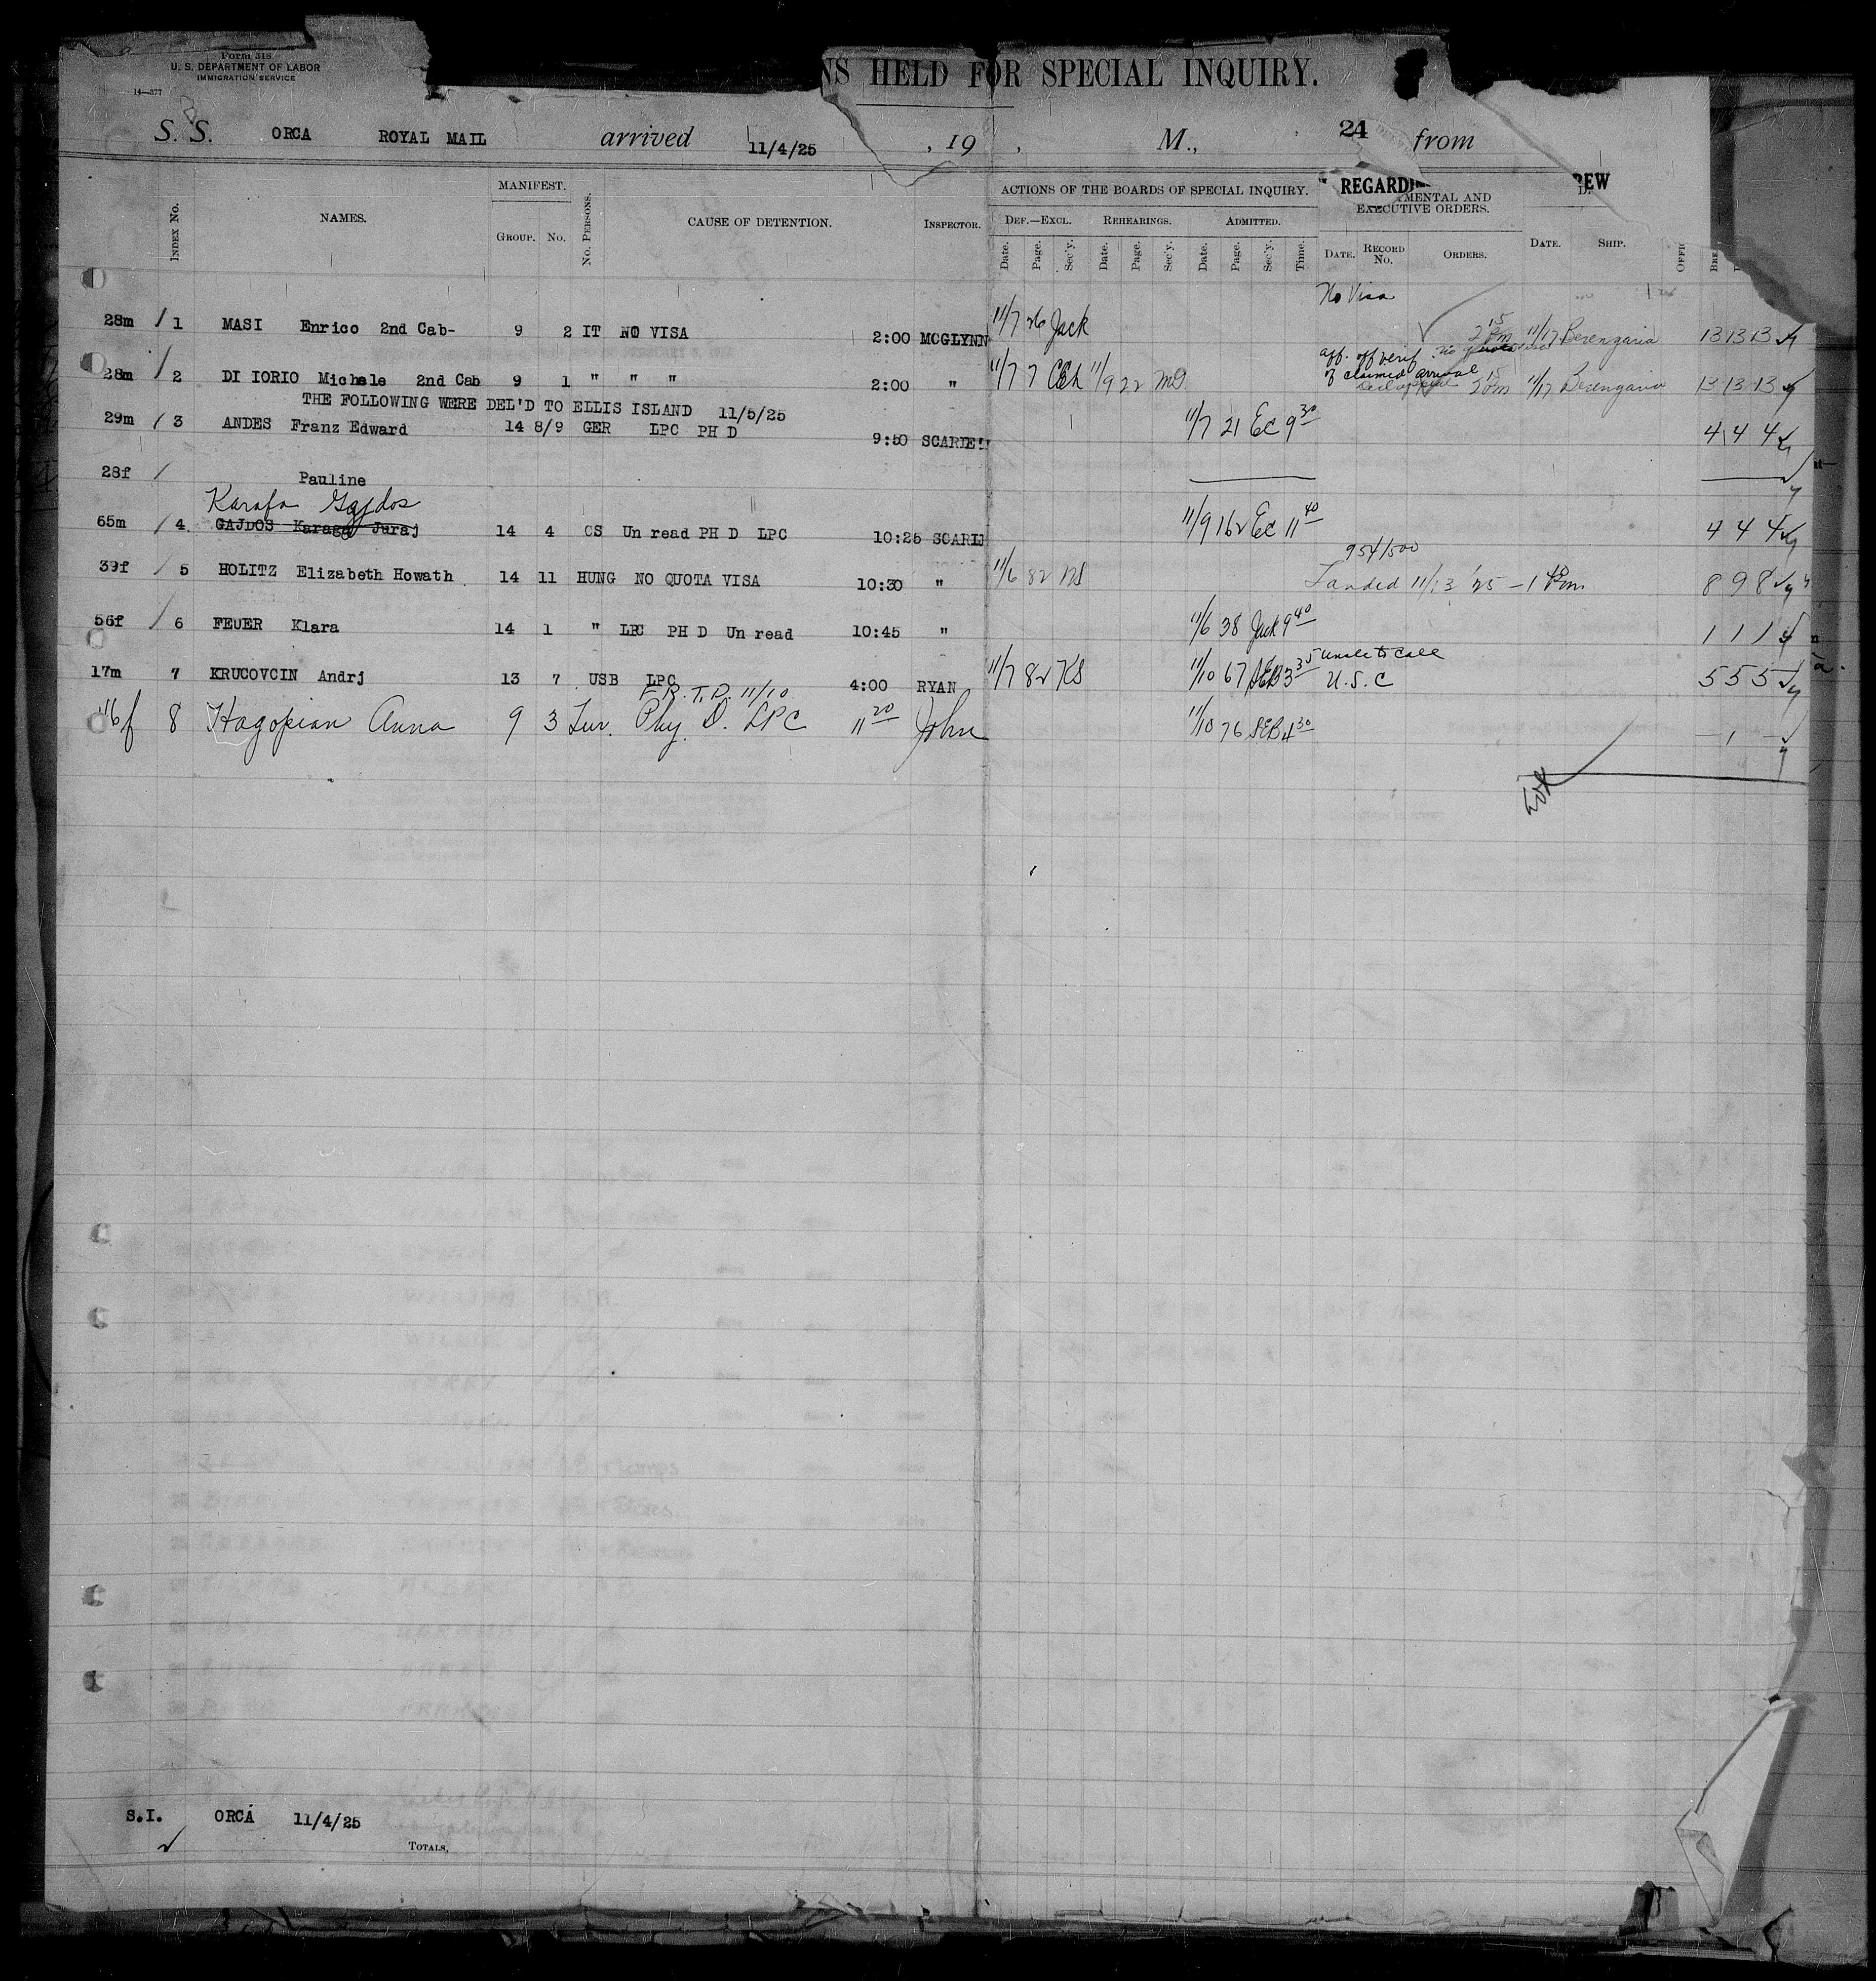 Form 518
U. S. DEPARTMENT OF LABOR
IMMIGRATION SERVICE
14—377
NS HELD FOR SPECIAL INQUIRY.
S. S. ORCA ROYAL MAIL arrived 11/4/25 , 19 , M., 24 from
INDEX No. NAMES. MANIFEST. GROUP. No. No. PERSONS. CAUSE OF DETENTION. INSPECTOR.
ACTIONS OF THE BOARDS OF SPECIAL INQUIRY. REGARDI REW
MENTAL AND EXECUTIVE ORDERS.
DEF.—EXCL. REHEARINGS. ADMITTED.
Date. Page. Sec'y. Date. Page. Sec'y. Date. Page. Sec'y. Time. DATE. RECORD No. ORDERS. DATE. SHIP.
No Visa
28m / 1 MASI Enrico 2nd Cab- 9 2 IT NO VISA 2:00 MCGLYNN 11/7 26 Jack 2 15 Pm 11/17 Berengaria 13 13 13
28m / 2 DI IORIO Michele 2nd Cab 9 1 " " " 2:00 " 11/7 7 11/9 22 aff. off verif. of claimed arrival 11/17 Berengaria 13 13 13
THE FOLLOWING WERE DEL'D TO ELLIS ISLAND 11/5/25
29m / 3 ANDES Franz Edward 14 8/9 GER LPC PH D 9:50 11/7 21 Ec 9 30 4 4 4
28f / Pauline
Karafa Gajdos
65m / 4 GAJDOS Karaga Juraj 14 4 CS Un read PH D LPC 10:25 11/9 162 Ec 11 40 4 4 4
954/500
39f / 5 HOLITZ Elizabeth Howath 14 11 HUNG NO QUOTA VISA 10:30 " 11/6 82 Landed 11/13 '25 8 9 8
56f / 6 FEUER Klara 14 1 " LPC PH D Un read 10:45 " 11/6 38 Jack 9 40 1 1 1
17m 7 KRUCOVCIN Andrj 13 7 USB LPC 4:00 RYAN 11/7 82 KS 11/10 67 SEB 3 35 U.S.C 5 5 5
T.D. 11/10
8 Hagopian Anna 9 3 Tur. Phy. D. LPC 11 20 John 11/10 76 SEB 4 30 1
S.I. ORCA 11/4/25
TOTALS,